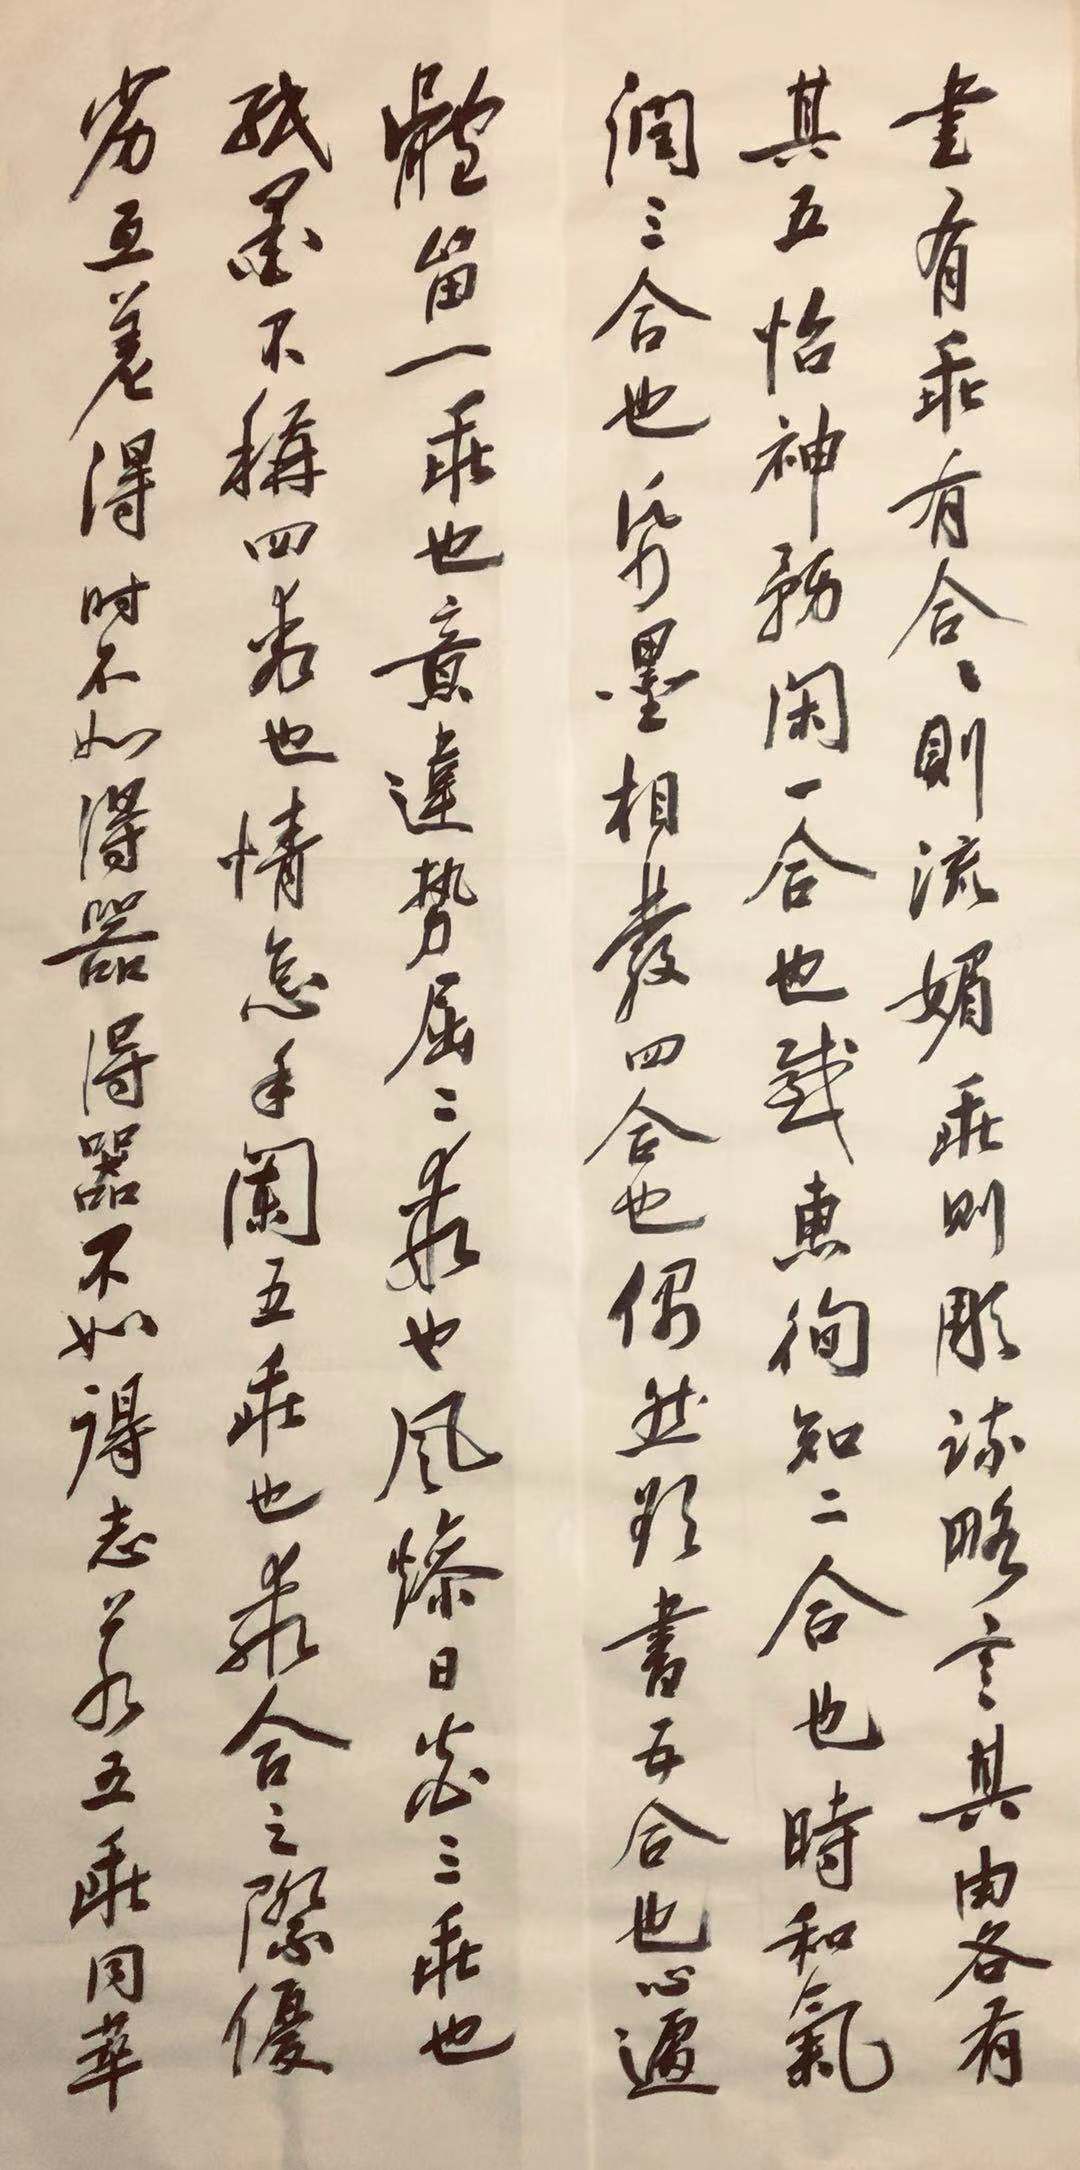 書有乖有合〻則流媚乖則彫疏略言其由各有
其五怡神務閑一合也感惠徇知二合也時和氣
潤三合也紙墨相發四合也偶然欲書五合也心遽
體留一乖也意違勢屈二乖也風燥日炎三乖也
紙墨不稱四乖也情怠手闌五乖也乖合之際優
劣互差得时不如得器得器不如得志若五乖同萃